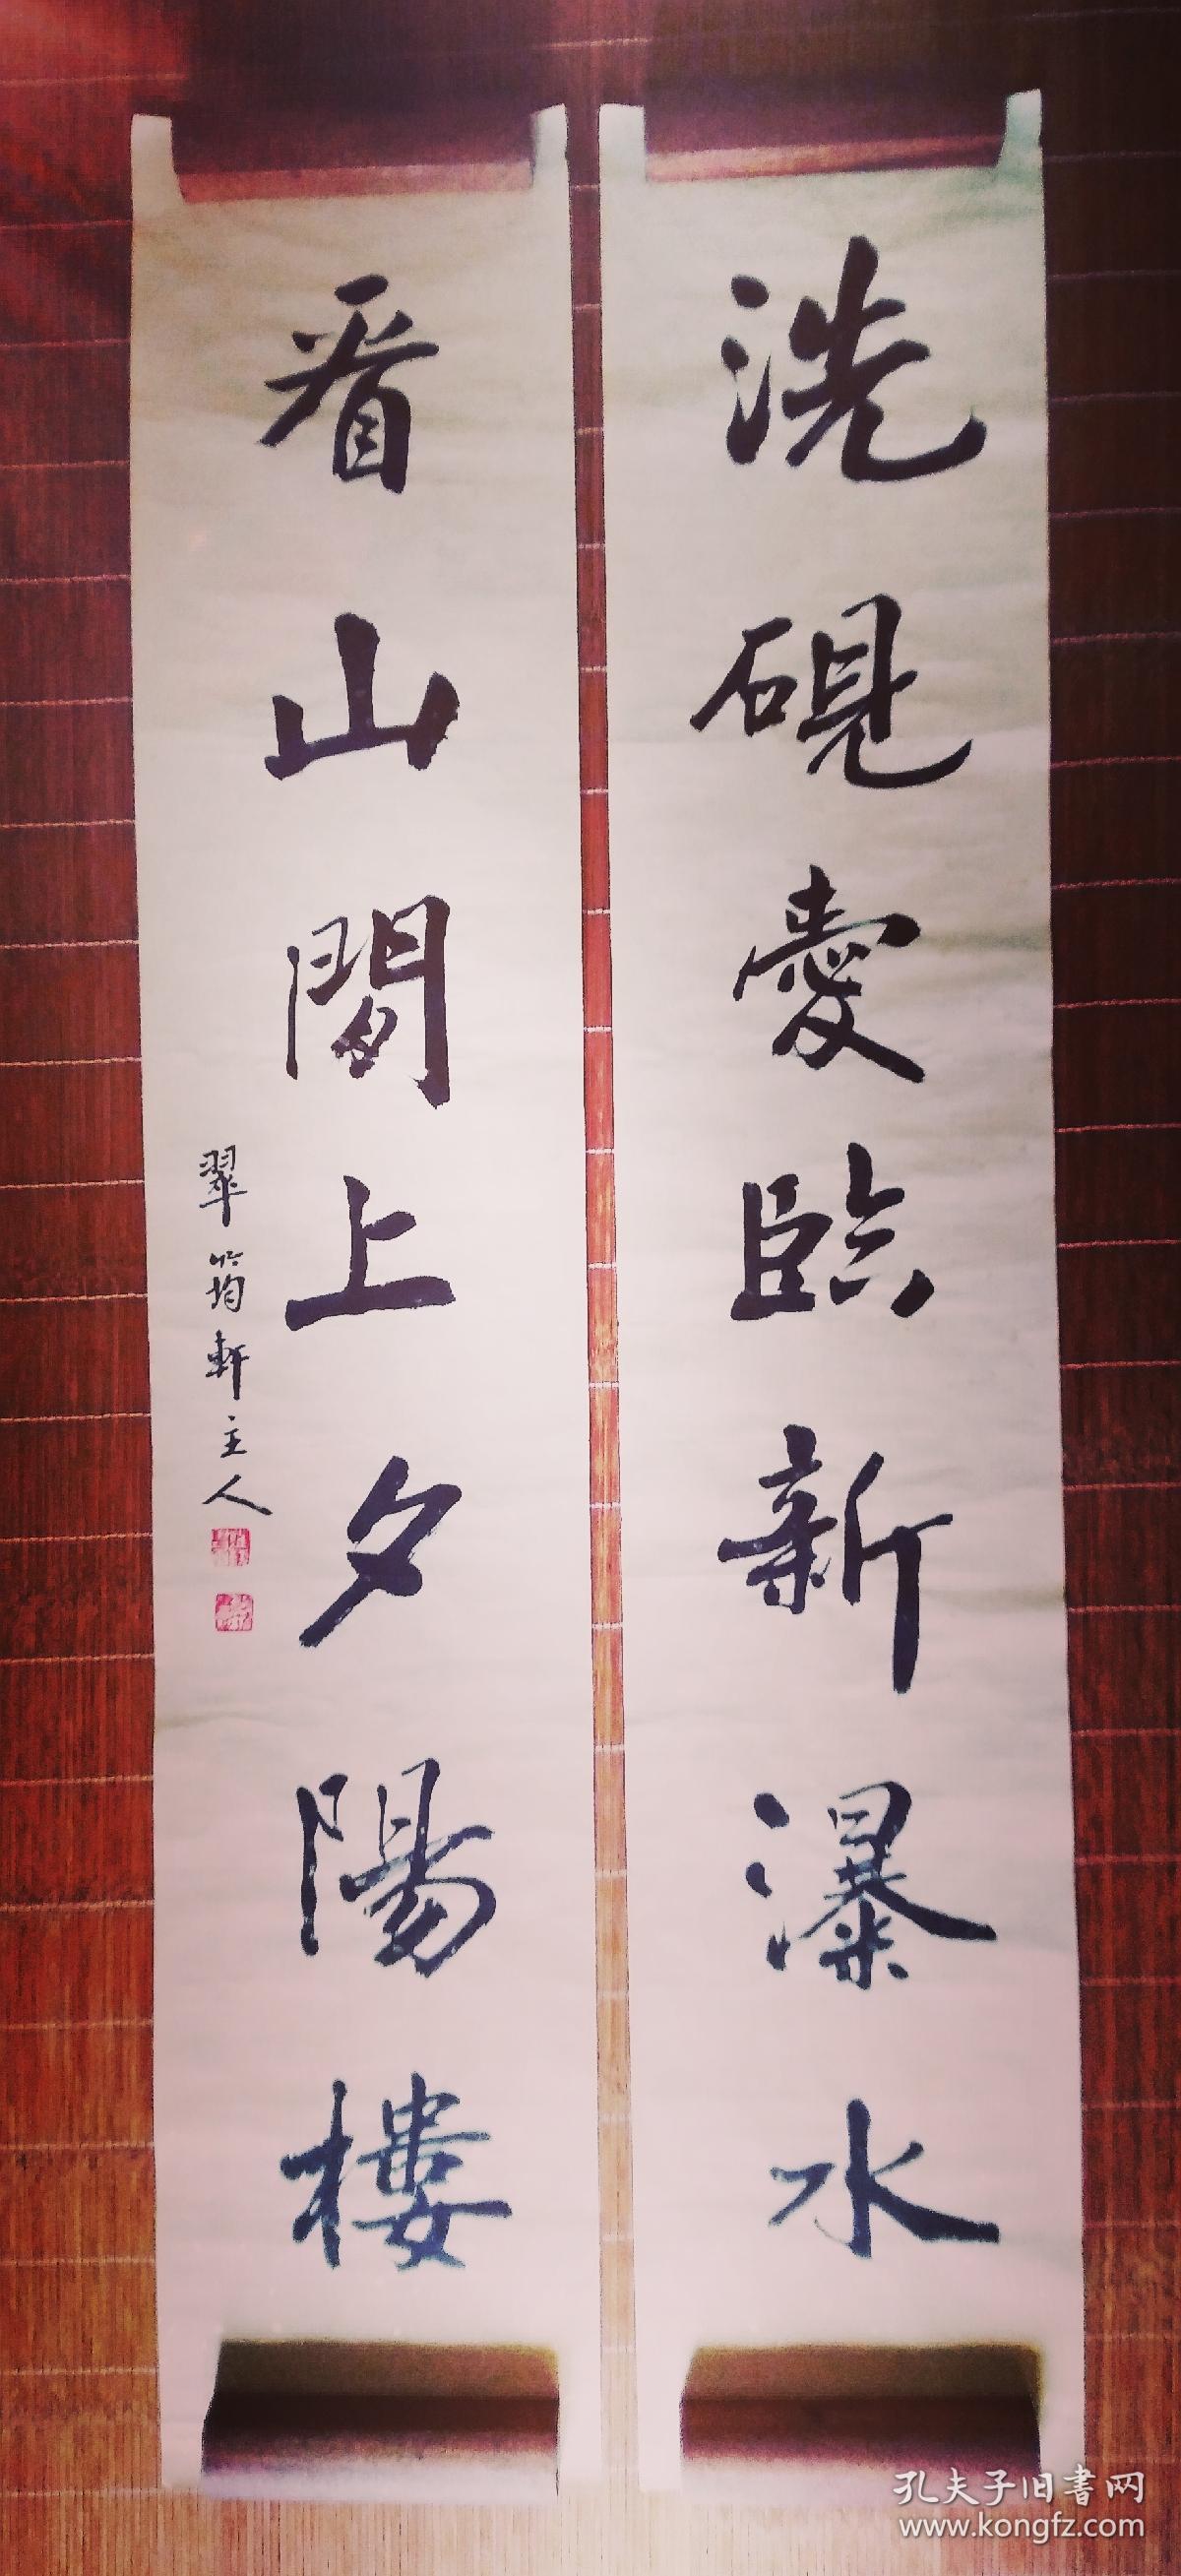 洗硯愛臨新瀑水
看山閒上夕陽樓
翠筠軒主人
孔夫子旧書网
www.kongfz.com